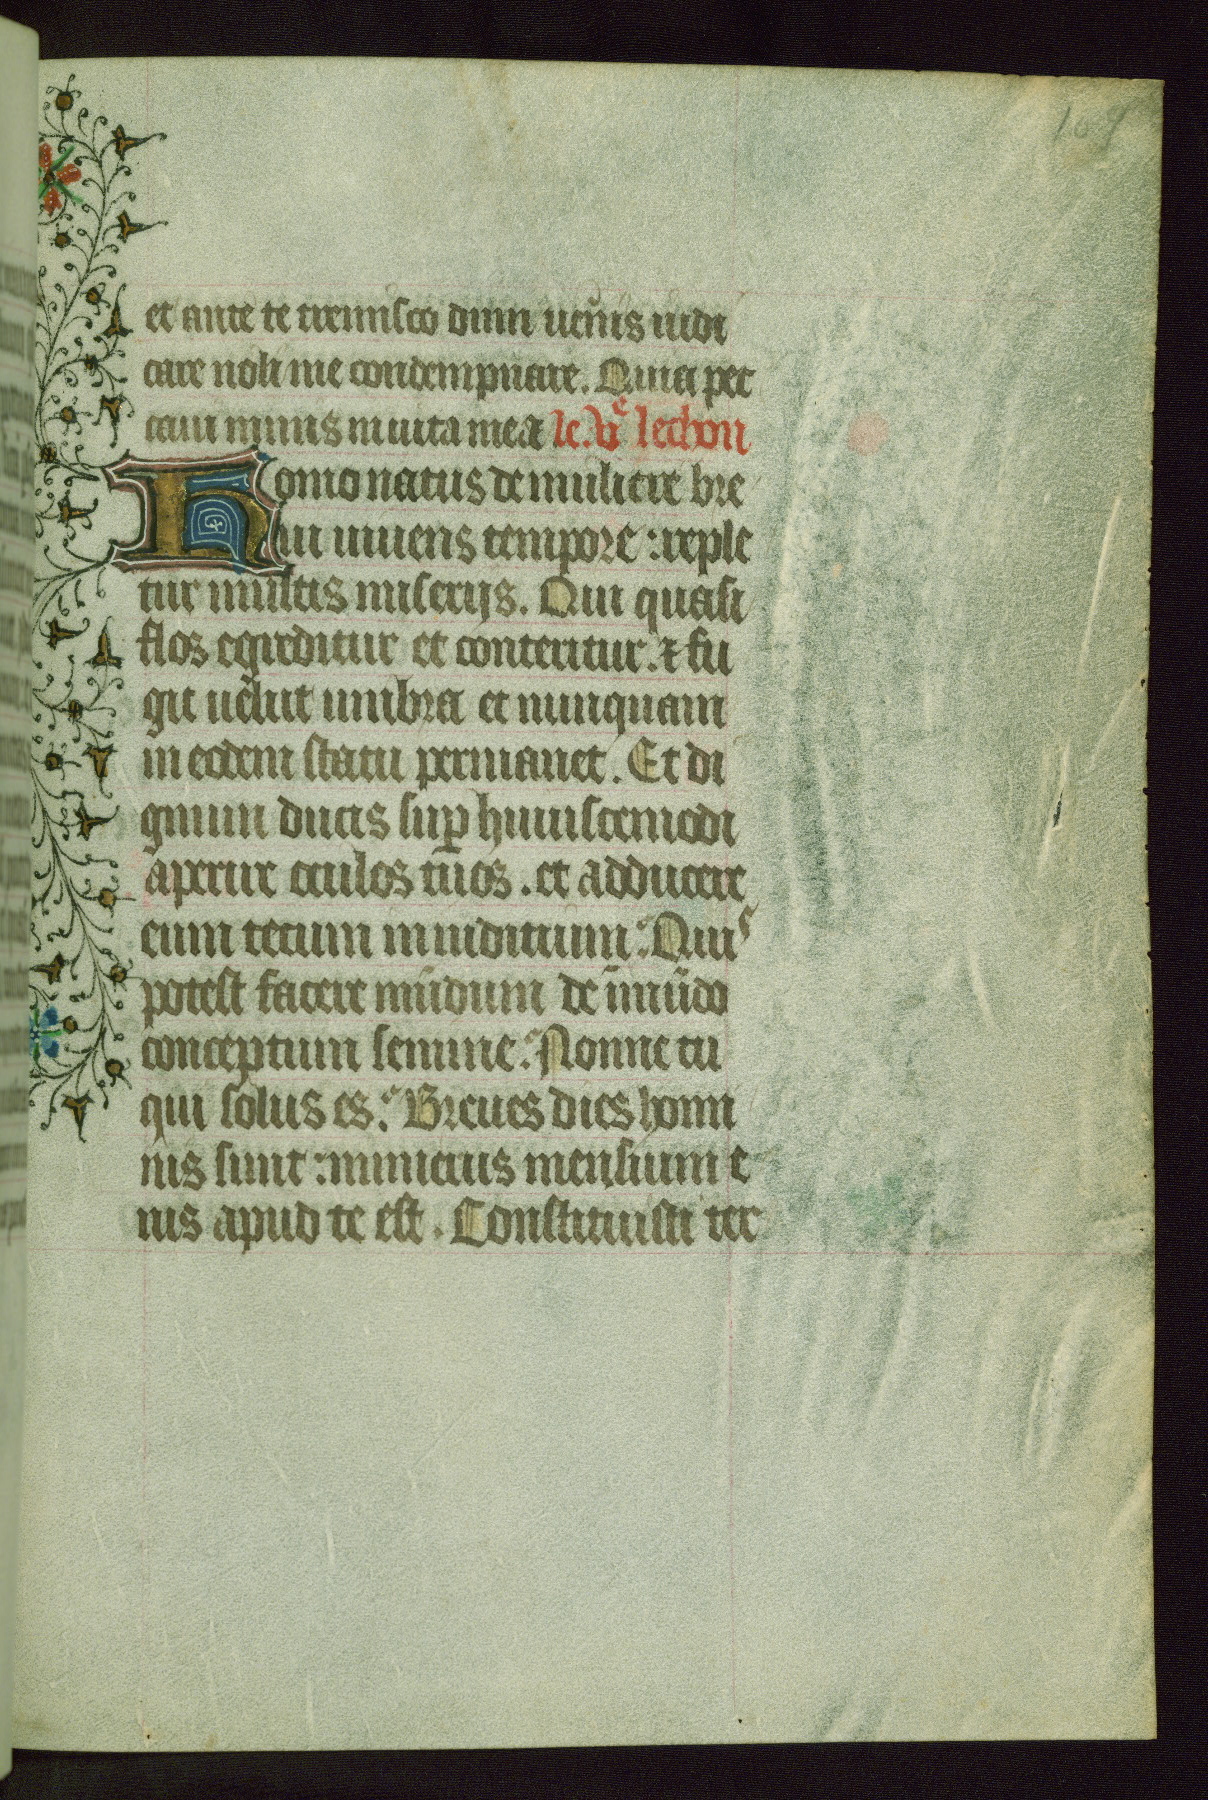 169
et ante te tremisco dum uen̄is iudi
care noli me condempnare. Quia pec
caui nimis in uita mea le. v͛ lechon
Homo natus de muliere bre
ui uiuens tempore : reple
tur multis miserijs. Qui quasi
flos egreditur et conteritur. ⁊ fu
git uelut umbra et nunquam
in eodem statu permanet. Et di
gnum ducis sup̄ huiuscemodi
aperire oculos tuos . et adducere
eum tecum in iuditium : Quis
potest facere mūdum de īmūdo
conceptum semine : Nonne tu
qui solus es : Breues dies homi
nis sunt : numerus mensium e
ius apud te est . Constituisti ter